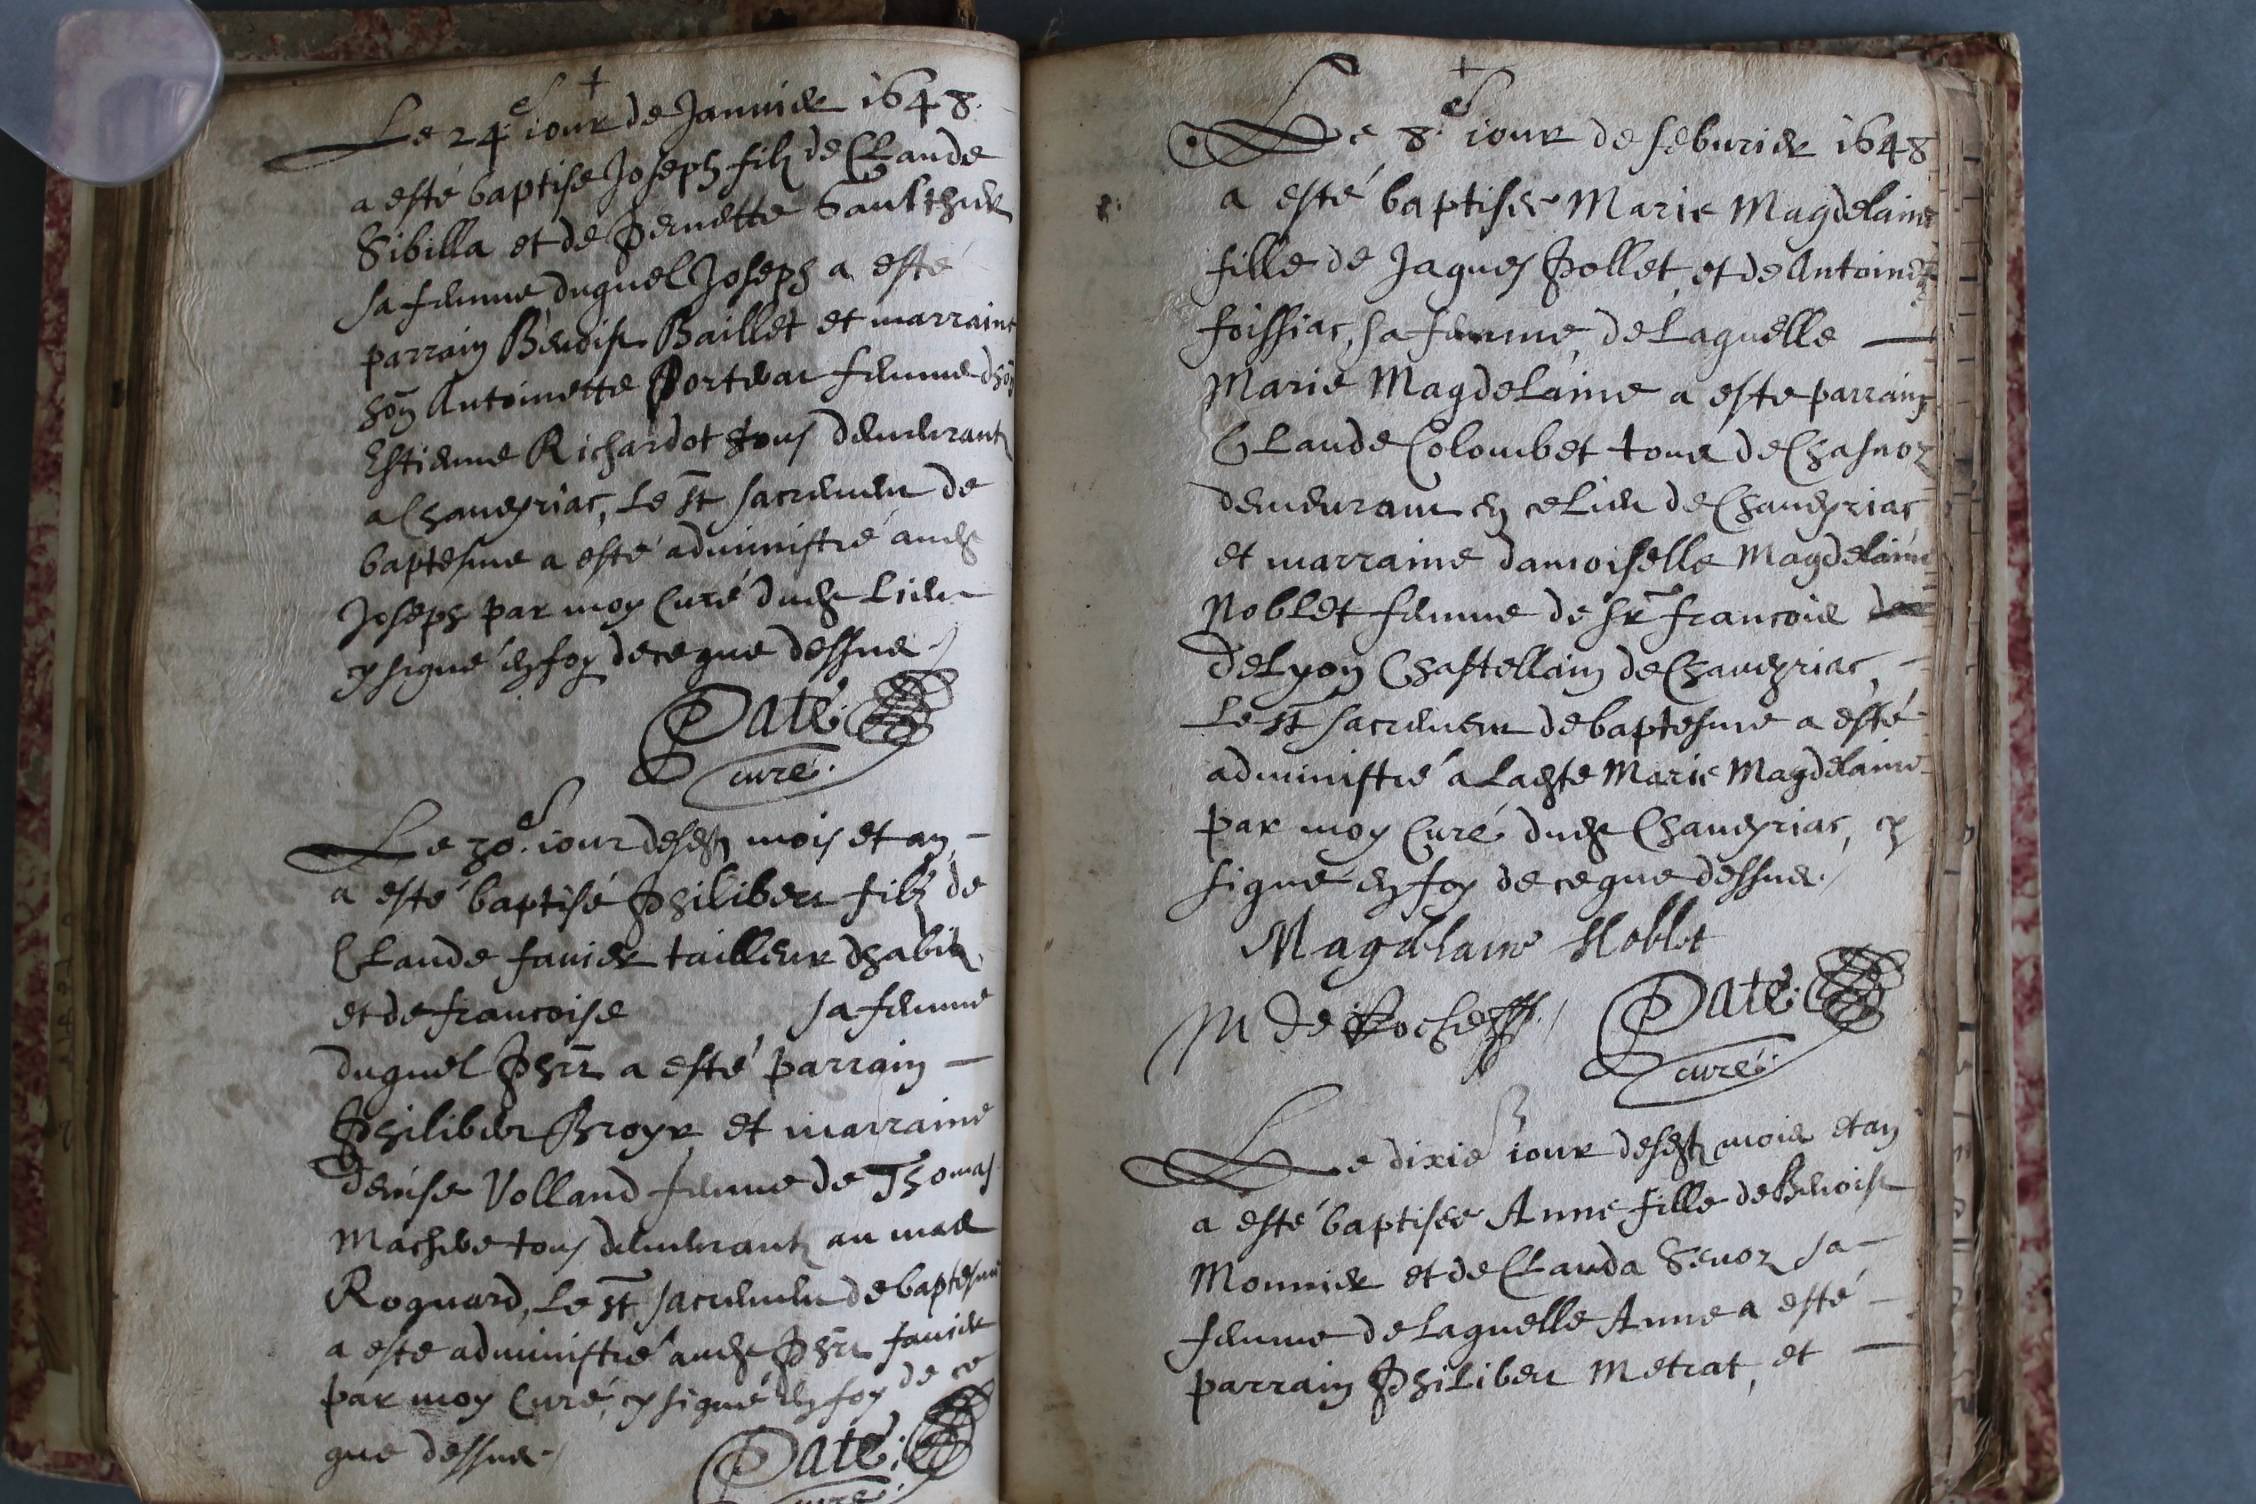 Le 24e iour de Januier 1648
a esté baptise Joseph filz de Claude
Sibilla et de Pernette Gaulthier
sa femme duquel Joseph a esté
parrain Benoist Baillet et marraine
hon Antoinette Portera femme dhon
Estienne Richardot tous demeurantz
a Chaueyriac, Le st sacrement de
baptesme a esté administré audt
Joseph par moy Curé dudt Lieu
cy signé en foy de ce que dessus
Paté
curé.
Le 30e iour desdtz mois et an
a esté baptisé Philibert filz de
Claude fauier tailleur dhabitz
et de francoise sa femme
duquel Phrt a esté parrain
Philibert Broyr et marraine
denise Volland femme de Thomas
Macheve tous demeurantz au mas
Roquard, Le st sacrement de baptesme
a este administré audt Phrt fauier
par moy Curé, cy signé en foy de ce
que dessus
Paté
curé
Le 8e iour de feburier 1648
a esté baptisée Marie Magdelaine
fille de Jaques Pollet, et de Antoine
foissiac, sa femme, de Laquelle
Marie Magdelaine a este parrain
Claude Colombet de Chasnoz
demeurant en ce Lieu de Chaueyriac
et marraine damoiselle Magdelaine
Noblet femme de sr francois
de Lyon Chastellain de Chaueyriac,
Le st sacrement de baptesme a esté
administré a Ladte Marie Magdelaine
par moy Curé dudt Chaueyriac, cy
signé en foy de ce que dessus.
Magdelaine Noblet
M De Roche
Paté
curé.
Le dixie iour desdtz mois et an
a esté baptisée Anne fille de Benoist
Monnier et de Clauda Seuoz sa
femme de Laquelle Anne a esté
parrain Philibert Metrat, et